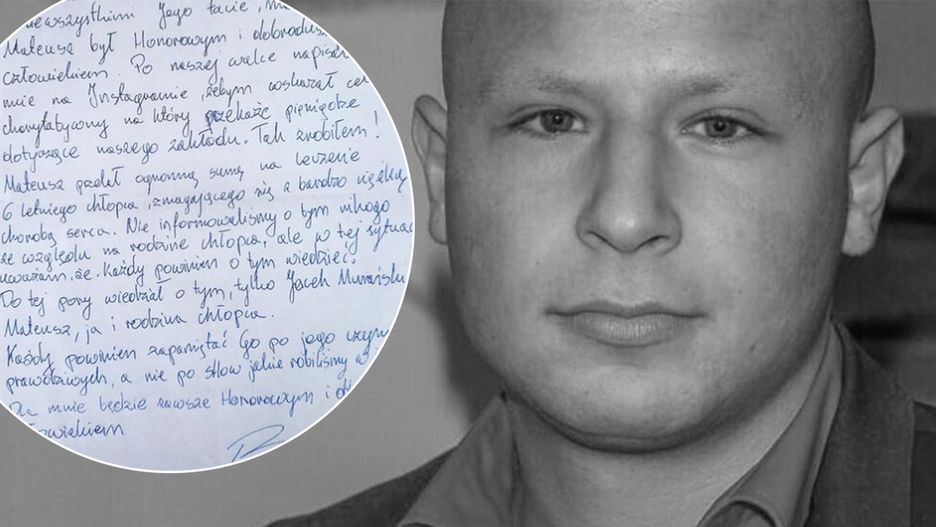 wszystkim Jego tacie,
Mateusz był Honorowym i
człowiekiem. Po naszej walce napisał
mnie na Instagramie, żebym wskazał cel
charytatywny na który przekaże pieniądze
dotyczące naszego zakładu. Tak zrobiłem!
Mateusz przelał ogromną sumę na leczenie
6 letniego chłopca, zmagającego się z bardzo ciężką
chorobą serca. Nie informowaliśmy o tym nikogo
ze względu na rodzinę chłopca, ale w tej sytuac
uważam, że. Każdy powinien o tym wiedzieć!
Do tej pory wiedział o tym, tylko Jacek Murański
Mateusz, ja i rodzina chłopca.
Każdy powinien zapamiętać Go po jego czyn
prawdziwych, a nie po słow jakie robiliśmy w
Dla mnie będzie zawsze Honorowym i